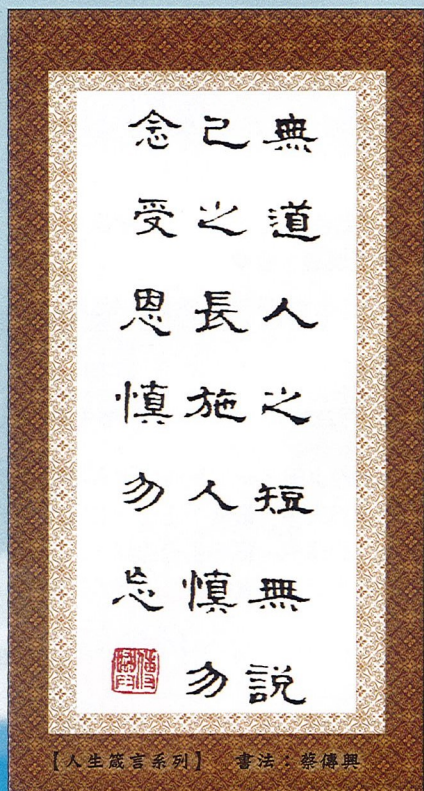 無道人之短無説
己之長施人慎勿
念受恩慎勿忘
傳興
【人生箴言系列】 書法：蔡傳興